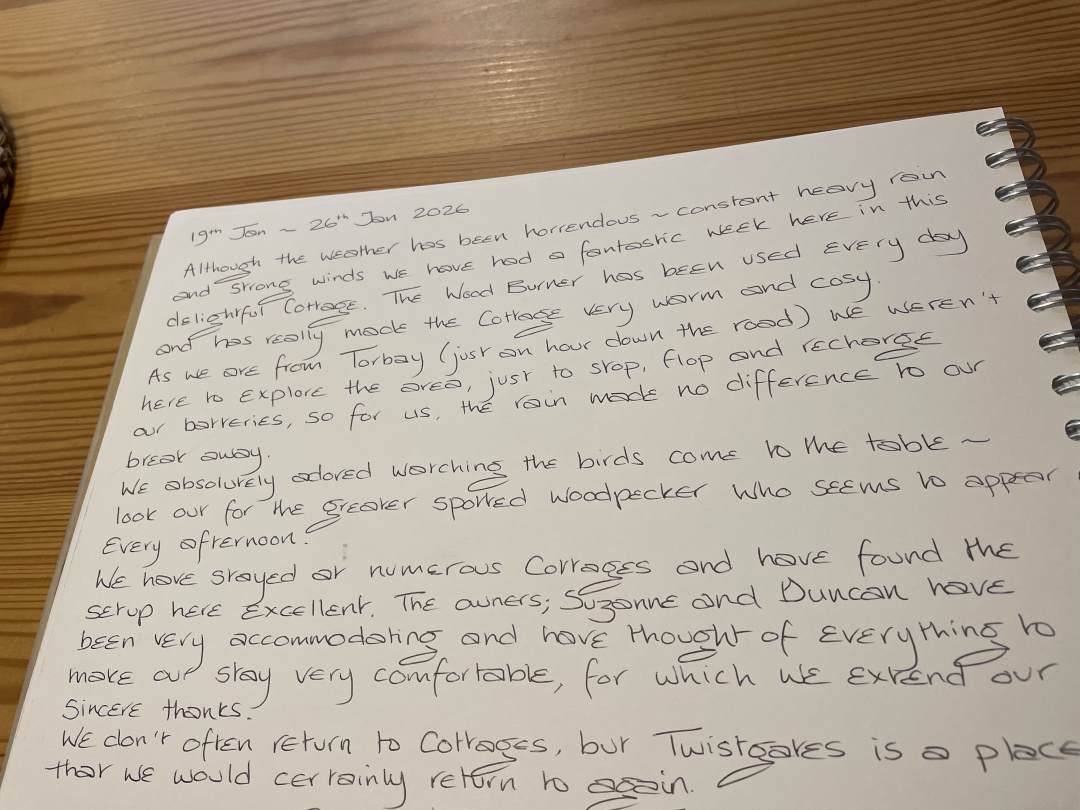 19th Jan ~ 26th Jan 2026
Although the weather has been horrendous ~ constant heavy rain
and strong winds we have had a fantastic week here in this
delightful Cottage. The Wood Burner has been used every day
and has really made the Cottage very warm and cosy.
As we are from Torbay (just an hour down the road) we weren't
here to explore the area, just to stop, flop and recharge
our batteries, so for us, the rain made no difference to our
break away.
We absolutely adored watching the birds come to the table ~
look out for the greater spotted woodpecker who seems to appear
every afternoon.
We have stayed at numerous Cottages and have found the
setup here excellent. The owners; Suzanne and Duncan have
been very accommodating and have thought of everything to
make our stay very comfortable, for which we extend our
sincere thanks.
We don't often return to Cottages, but Twistgates is a place
that we would certainly return to again.